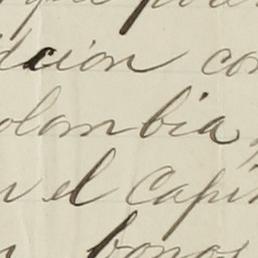 que
dicion con
olombia,
n el Capi
bonos